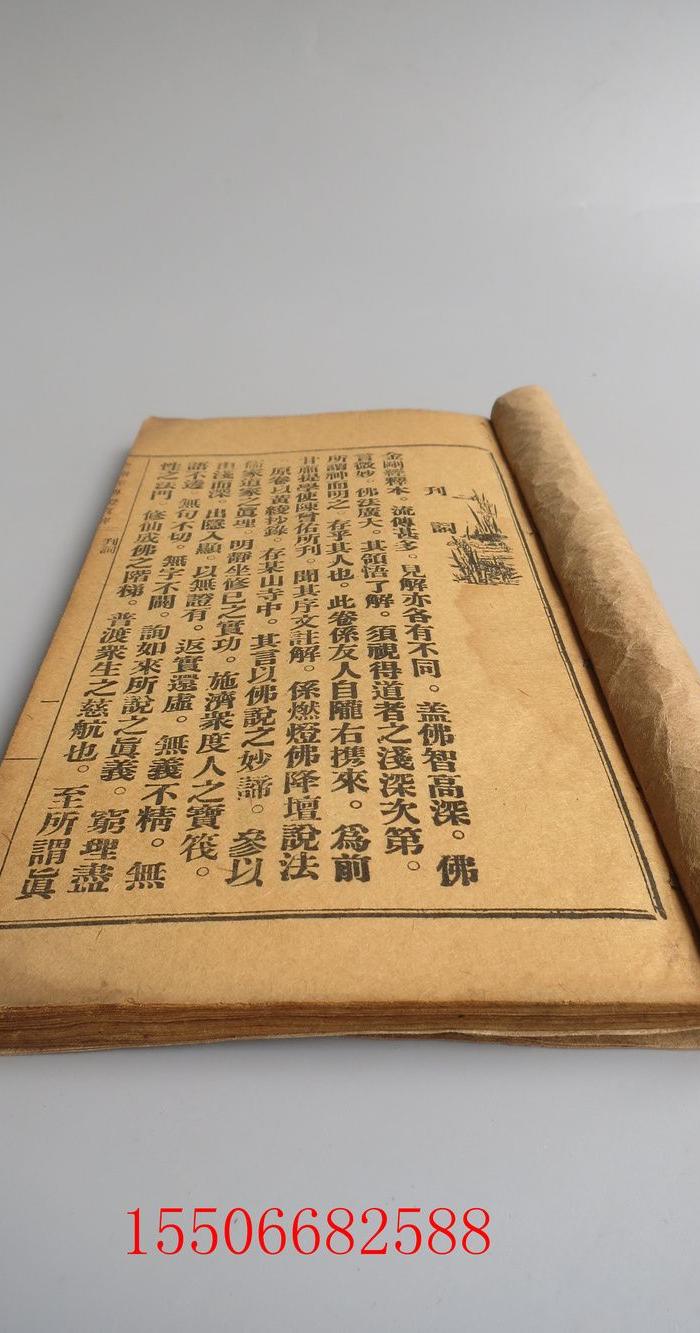 刊詞
金剛經釋本。流傳甚多。見解亦各有不同。蓋佛智高深。佛
言微妙。佛法廣大。其領悟了解。須視得道者之淺深次第。
所謂神而明之。存乎其人也。此卷係友人自隴右携來。為前
甘肅提學使陳曾佑所刊。聞其序文註解。係燃燈佛降壇說法
原卷以黃綾抄錄。存某山寺中。其言以佛說之妙諦。參以
儒家道家之真理。明靜坐修己之實功。施濟衆度人之實筏。
由淺而深。出隱入顯。以無證有。返實還虛。無義不精。無
語不透。無句不切。無字不闢。詢如來所說之眞義。窮理盡
性之法門。修仙成佛之階梯。普渡衆生之慈航也。至所謂眞
刊詞
一
15506682588